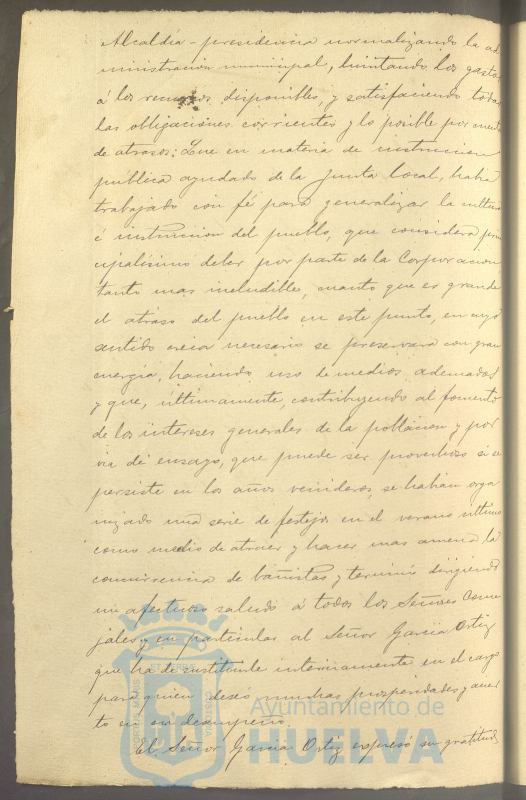 Alcaldía-presidencia normalizando la ad
ministración municipal, limitando los gastos
á los recursos disponibles, y satisfaciendo todas
las obligaciones corrientes y lo posible por cuenta
de atrasos; Que en materia de instruccion
pública ayudado de la Junta local, habia
trabajado con fé para generalizar la cultura
é instruccion del pueblo, que considera prin
cipalísimo deber por parte de la Corporacion
tanto mas ineludible, cuanto que es grande
el atraso del pueblo en este punto, en cuyo
sentido creia necesario se preservara con gran
energía, haciendo uso de medios adecuados
y que, últimamente, contribuyendo al fomento
de los intereses generales de la poblacion y por
via de ensayo, que puede ser provechoso si se
persiste en los años venideros, se habian orga
nizado una série de festejos en el verano último
como medio de atraer y hacer mas amena la
concurrencia de bañistas y terminó dirigiendo
un afectuoso saludo á todos los Señores Conce
jales y en particular al Señor Garcia Ortiz
que ha de sustituirle interinamente en el cargo
para quien deseó muchas prosperidades y acier
to en su desempeño.
El Señor Garcia Ortiz expresó su gratitud
PORTUS MARIS
ET TERRE
CUSTODIA
Ayuntamiento de
HUELVA